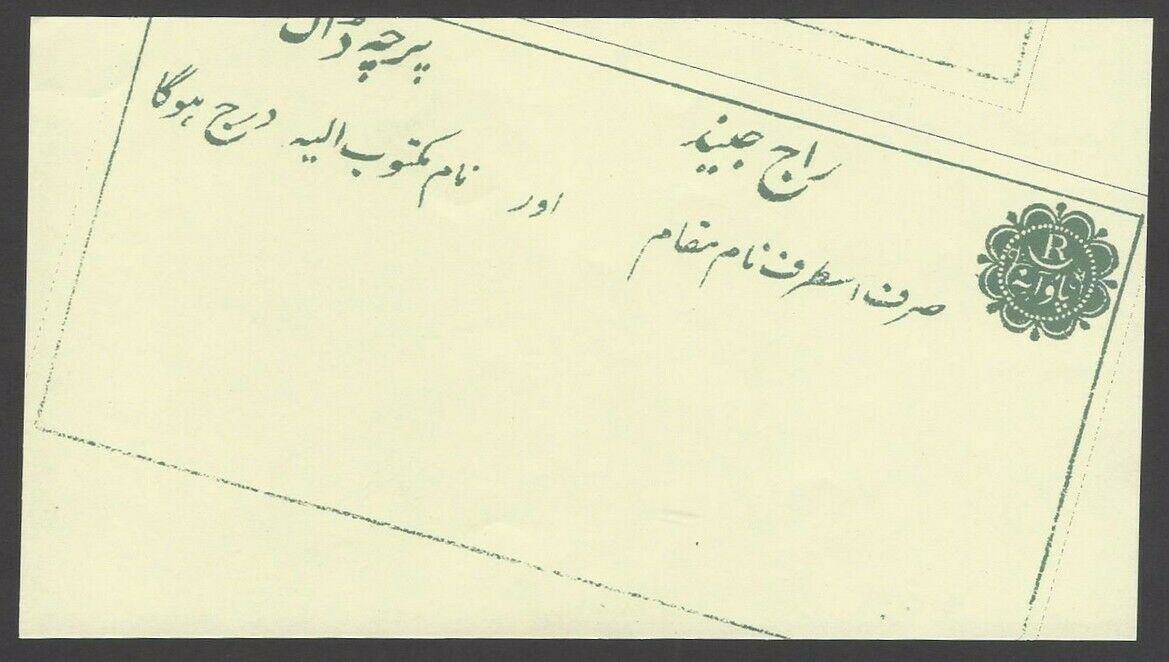 راج جیند پرچہ ڈاک
صرف اسطرف نام مقام اور نام مکتوب الیہ درج ہوگا
R
پاو آنہ